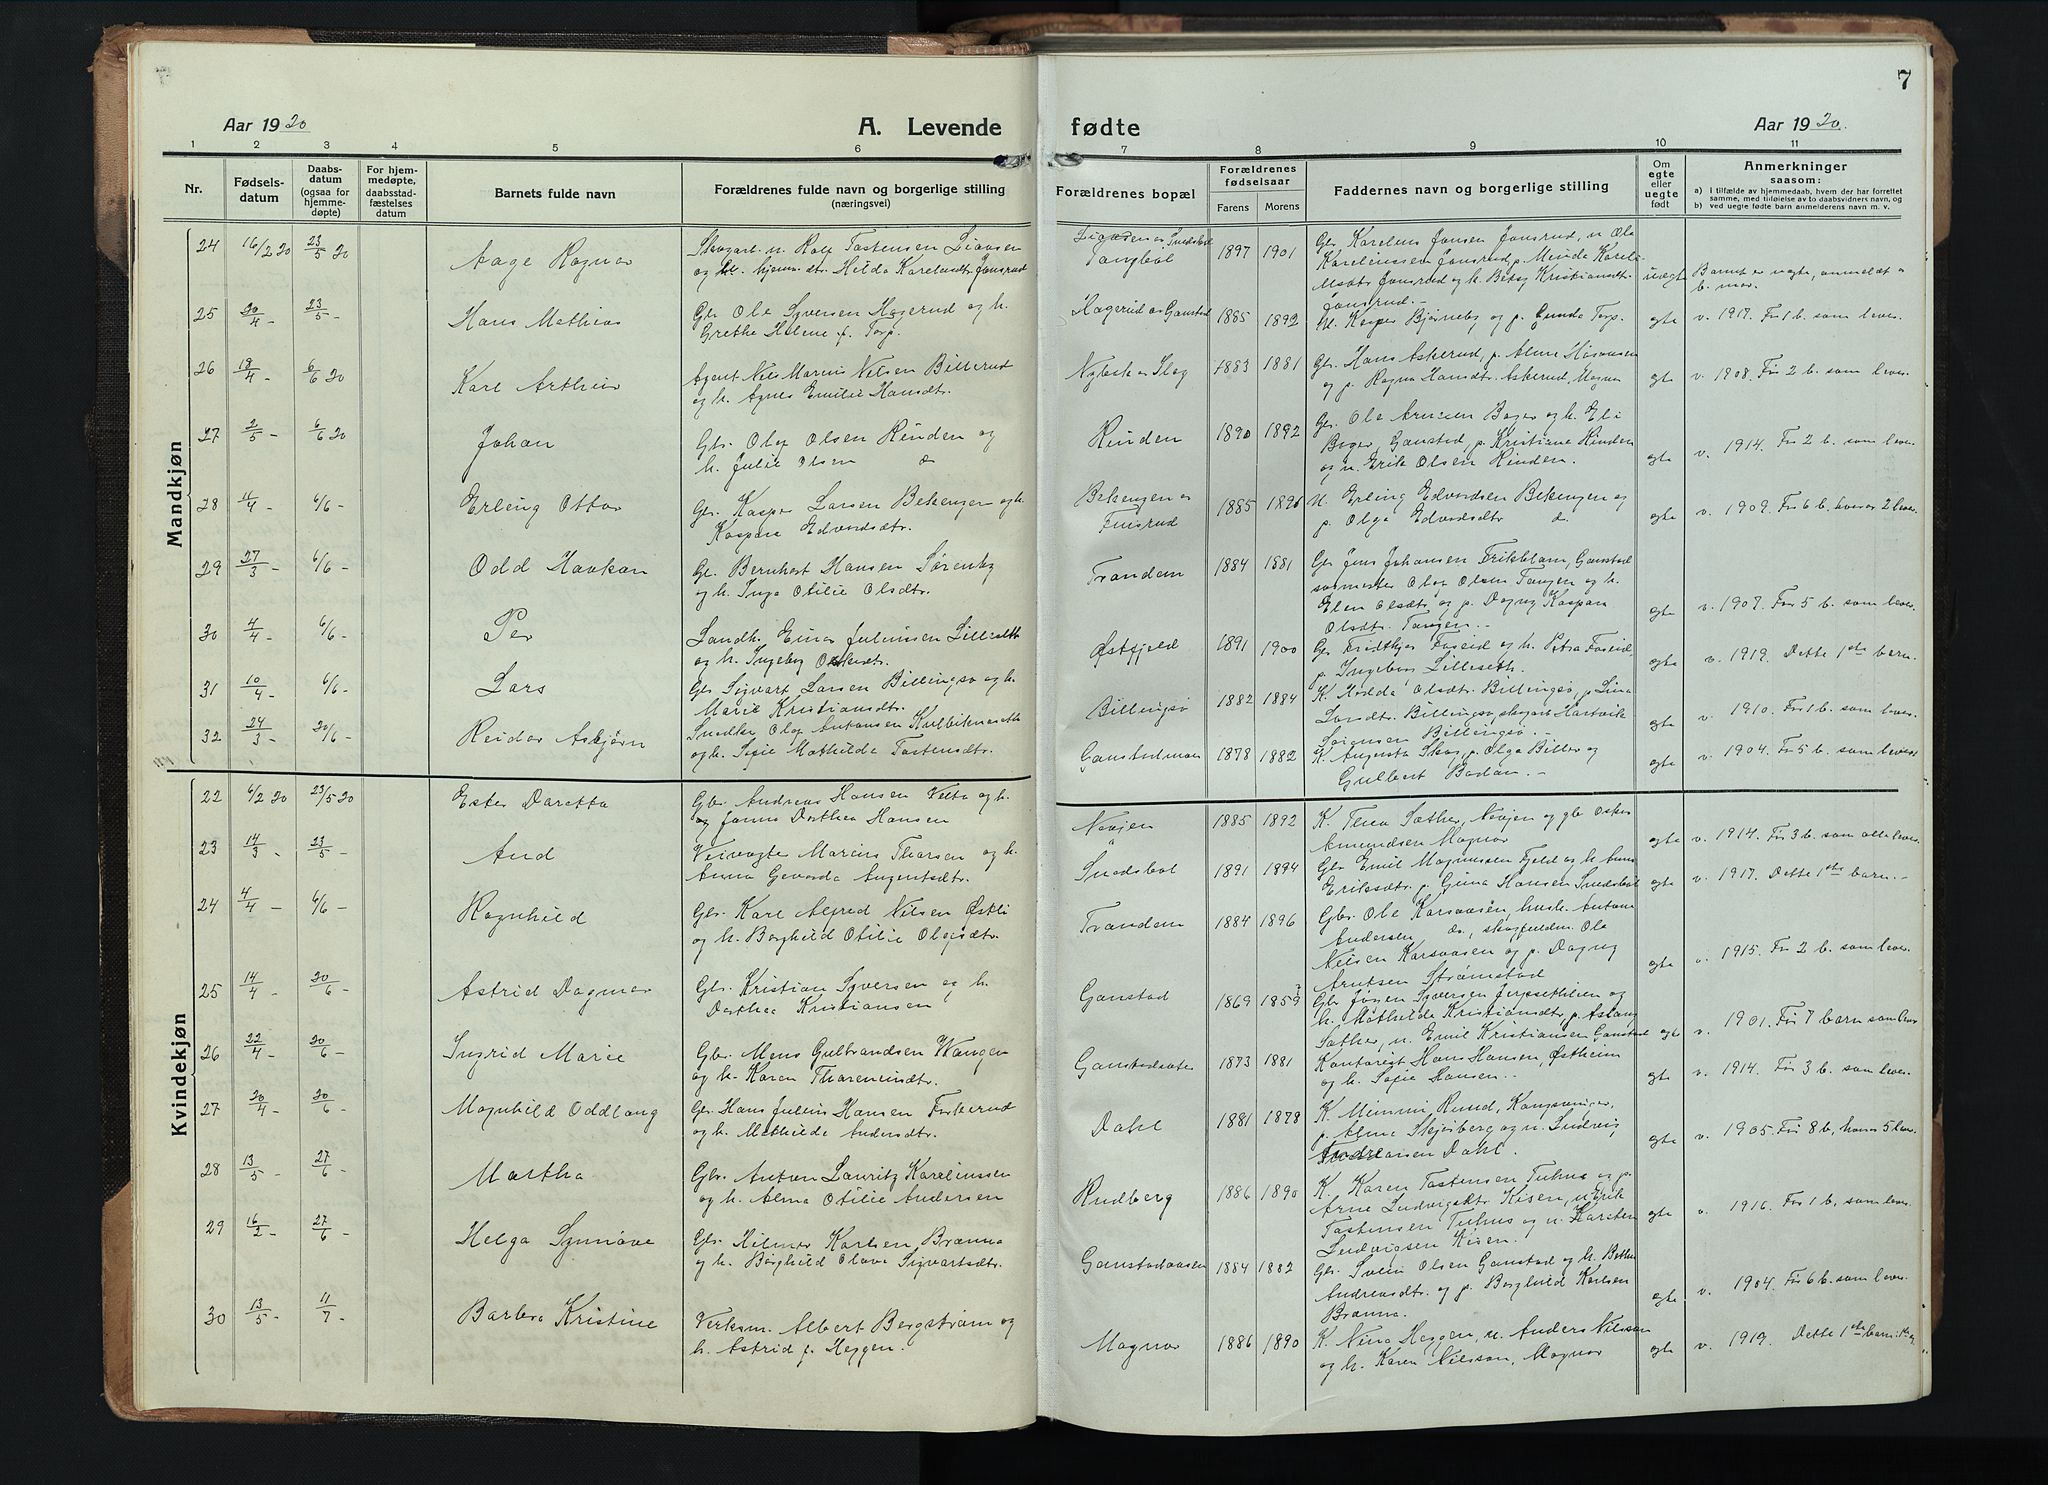 7
Aar 1920
A. Levende
fødte
Aar 1920.
1 2 3 4 5 6 7 8 9 10 11
Nr.
Fødselsdatum
Daabsdatum (ogsaa for hjemmedøpte)
For hjemmedøpte, daabsstadfæstelses datum
Barnets fulde navn
Forældrenes fulde navn og borgerlige stilling (næringsvei)
Forældrenes bopæl
Forældrenes fødselsaar
Farens Morens
Faddernes navn og borgerlige stilling
Om egte eller uegte født
Anmerkninger
saasom:
a) I tilfælde av hjemmedaab, hvem der har forrettet samme, med tilføielse av to daabsvidners navn, og
b) ved uegte fødte barn anmelderens navn m. v.
Mandkjøn
24 16/2 20 23/5 20 Aage Ragnar
og hjemmedtr. Hilda
Tangbøl 1897 1901
Gbr. Karelius Jansen Jonsrud,
uegte Barnet er uegte, anmeldt av b. mor.
25 20/4 - 23/5 - Hans Mathias
Gbr Ole Syversen Hagerud og h.
Grethe Helene f. Torp.
Hagerud av Gaustad 1885 1892
K. Kasper Bjørneby og p. Gunda Torp.
egte v. 1917. Før 1 b. som lever.
26 18/4 - 6/6 20 Karl Arthur
Agent Nils Marius Nilsen Billerud
og h. Agnes Emilie Hansdtr.
1883 1881
Gbr. Hans Askerud, p. Alma
og p. Ragna Hansdtr. Askerud, Magnor
egte v. 1908. Før 2 b. som lever.
27 2/5 - 6/6 20 Johan
Gbr. Olaf Olsen Rinden og
h. Julie Olsen do
Rinden 1890 1892
Gbr. Ole Arnesen Bager og h. Eli
Bager, Gaustad, p. Kristiane Rinden
og u. Erik Olsen Rinden.
egte v. 1914. Før 2 b. som lever.
28 11/4 - 6/6 - Erling Ottar
Gbr. Kasper Larsen Bekengen og h.
Kaspara Edvardsdtr.
Bekengen av
Finsrud 1885 1896
U. Erling Edvardsen Bekengen og
p. Olga Edvardsdtr do.
egte v. 1909. Før 6 b. hvorav 2 lever.
29 27/3 - 6/6 - Odd Haakon
Gbr. Bernhart Hansen Sørenby
og h. Inga Otilie Olsdtr.
Trandem 1884 1881
Gbr Jens Johansen Gaustad
Olaf Olsen Tangen og h.
Elen Olsdtr og p. Dagny Kaspara
Olsdtr. Tangen. -
egte v. 1907. Før 5 b. som lever.
30 4/4 - 6/6 - Per
Landh. Einar Juliussen Lilleseth
og h. Ingeborg
Østfjeld 1891 1900
Gbr Fridthjof Foseid og h. Petra Foseid,
p. Ingeborg Lilleseth.
egte v. 1919. Dette 1ste barn.
31 10/4 - 6/6 - Lars
Gbr Sigvart Larsen Billingsø og h.
Marie Kristiansdtr.
Billingsø 1882 1884
K. Hodda Olsdtr. Billingsø, p. Lina
Larsdtr. Billingsø, skogarb Hartvik
Sørensen Billingsø. -
egte v. 1910. Før 1 b. som lever.
32 24/3 - 20/6 - Reidar Asbjørn
Snedker Olaf Antonsen
og h. Josie Mathilda Tostensdtr.
Gaustadmoen 1878 1882
K. Augusta Skog, p. Olga Biller og
Gulbert Badan. -
egte v. 1904. Før 5 b. som lever.
Kvindekjøn
22 6/2 20 23/5 20 Ester Doretta
Gbr Andreas Hansen Velta og h.
og Janna Dorthea Hansen
Nevjen 1885 1892
K. Tena Sæther, Nevjen og gbr Oskar
Amundsen Magnor
egte v. 1914. Før 3 b. som alle lever.
23 14/3 - 23/5 - Aud
Veivogter Marius Thorsen og h.
Anna Gevarda Augustsdtr.
Snedsbøl 1891 1894
Gbr Emil Magnussen Fjeld og h. Anna
Eriksdtr. p. Gina Hansen Snedsbøl
egte v. 1917. Dette 1ste barn. -
24 4/4 - 6/6 - Ragnhild
Gbr. Karl Alfred Nilsen Østli
og h. Borghild Otilie Olafsdtr.
Trandem 1884 1896
Gbr. Ole Korsvasen, hush. Antone
Andersen do., skogfuldm. Ole
Nilsen Korsvasen og p. Dagny
Arntsen Strømstad
egte v. 1915. Før 2 b. som lever.
25 14/4 - 20/6 - Astrid Dagmar
Gbr. Kristian Syversen og h.
Dorthea Kristiansen
Gaustad 1869 1859?
Gbr. Johan Syversen Jerpsethlien og
h. Mathilda Kristiansdtr, p. Aslaug
Sæther, u. Emil Kristiansen Gaustad
egte v. 1901. Før 7 barn som lever
26 22/4 - 20/6 - Ingrid Marie
Gbr. Mons Gulbrandsen Wangen
og h. Karen Thorenusdtr.
1873 1881
Hans Hansen, Østheim
og h. Sofie Hansen. -
egte v. 1914. Før 3 b. som lever.
27 20/4 - 20/6 - Magnhild Oddlaug
Gbr. Hans Julius Hansen Forkerud
og h. Mathilde Andersdtr.
Dahl 1881 1878
K. Mimmi Ruud, Kongsvinger,
p. Alma Skjerberg og u. Ludvig
Dahl.
egte v. 1905. Før 8 b, hvorav 5 lever.
28 13/5 - 27/6 - Martha
Gbr. Anton Lauritz Kareliussen
og h. Alma Otilie Andersen
Rudberg 1886 1890
K. Karen Tostensen Tuhus og p.
Arne Ludvigsdtr Kisen, u. Erik
Tostensen Tuhus og u. Karsten
Ludvigsen Kisen.
egte v. 1916. Før 1 b, som lever.
29 16/2 - 27/6 - Helga Synnøve
Gbr. Hilmar Karlsen Brænna
og h. Borghild Olava Sigvartsdtr.
Gaustadaasen 1884 1882
Gbr. Svein Olsen Gaustad og h. Bethea
Andreasdtr. og p. Borghild Karlsen
Brænna.
egte v. 1904. Før 6 b. som lever.
30 13/5 - 11/7 - Barbra Kristine
Verksm. Albert Bergstrøm og
h. Astrid f. Heggen.
Magnor 1886 1890
K. Nina Heggen, u. Anders Nilsson
og h. Karen Nilsson, Magnor
egte v. 1919. Dette 1ste barn.